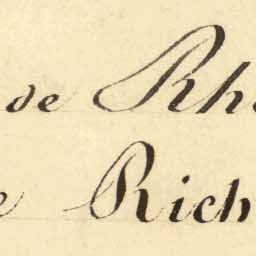 de Rh
e Rich